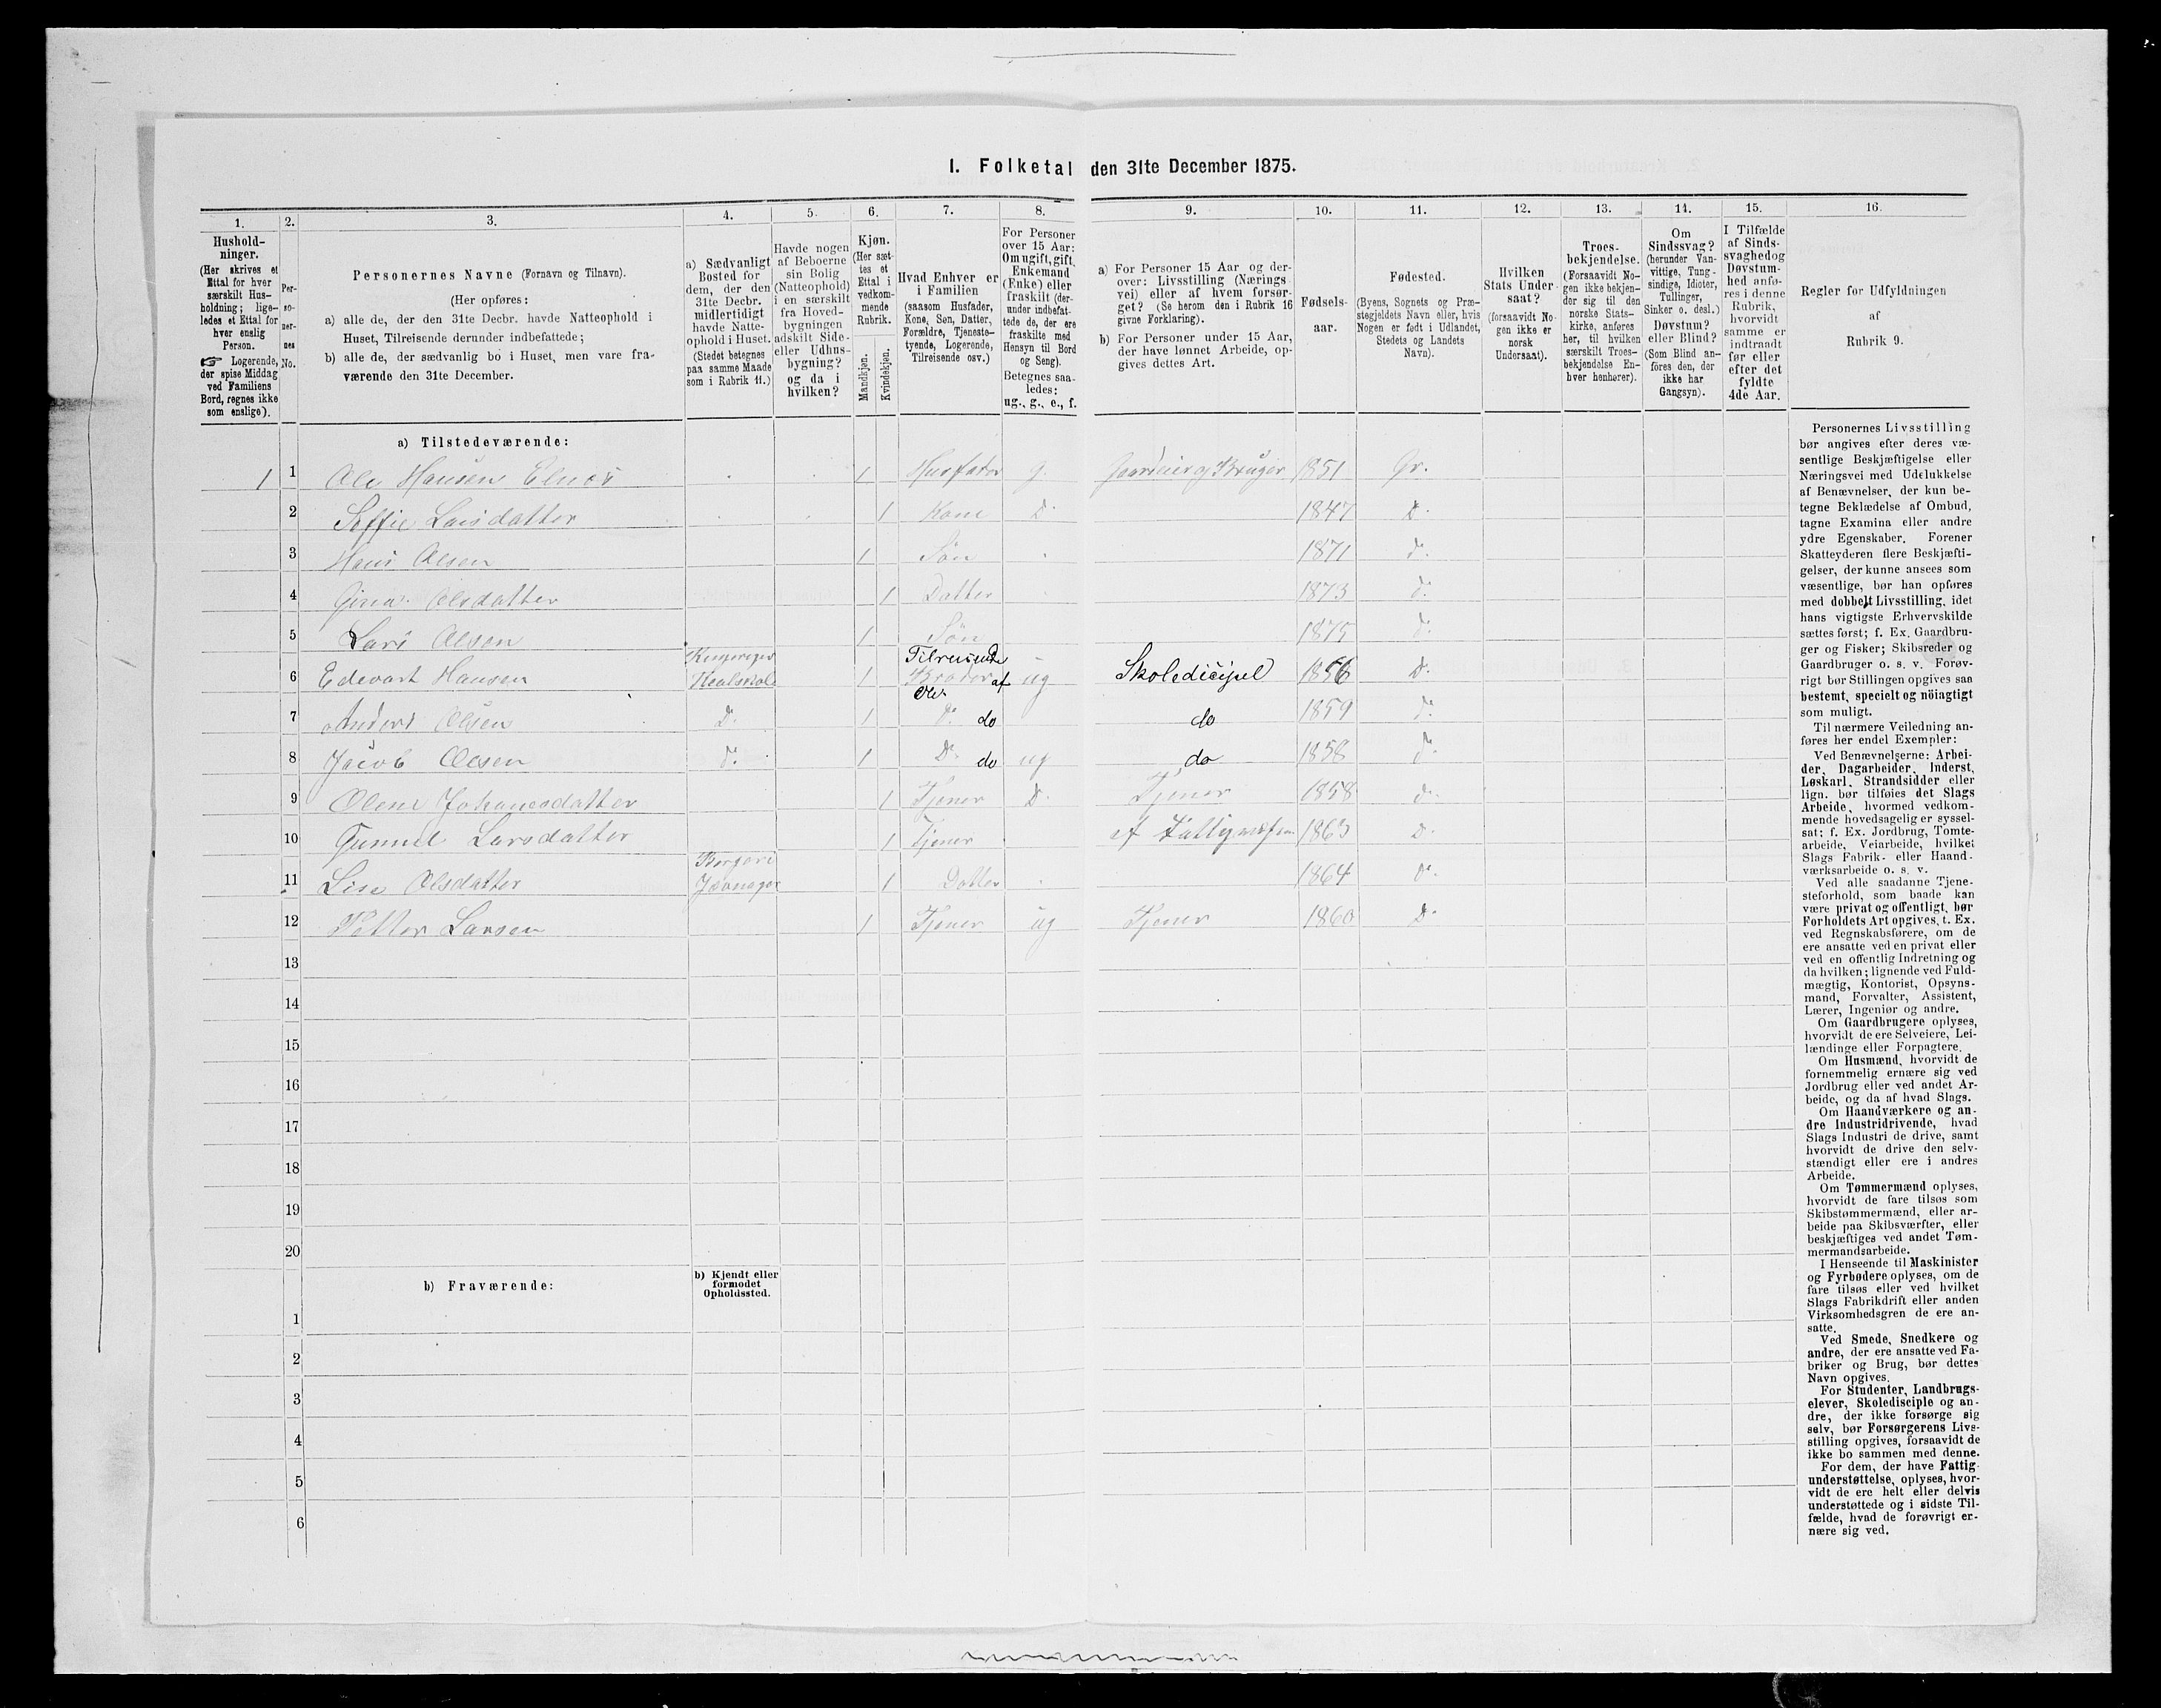 I. Folketal den 31te December 1875.
1. 2. 3. 4. 5. 6. 7. 8. 9. 10. 11. 12. 13. 14. 15. 16.
Hushold-
ninger.
(Her skrives et
Ettal for hver
særskilt Hus-
holdning; lige-
ledes et Ettal for
hver enslig
Person.
☞ Logerende,
der spise Middag
ved Familiens
Bord, regnes ikke
som enslige).
Per-
so-
ner-
nes
No.
Personernes Navne (Fornavn og Tilnavn).
(Her opføres:
a) alle de, der den 31te Decbr. havde Natteophold i
Huset, Tilreisende derunder indbefattede;
b) alle de, der sædvanlig bo i Huset, men vare fra-
værende den 31te December.
a) Sædvanligt
Bosted for
dem, der den
31te Decbr.
midlertidigt
havde Natte-
ophold i Huset.
(Stedet betegnes
paa samme Maade
som i Rubrik 11.)
Havde nogen
af Beboerne
sin Bolig
(Natteophold)
i en særskilt
fra Hoved-
bygningen
adskilt Side-
eller Udhus-
bygning?
og da i
hvilken?
Kjøn.
(Her sæt-
tes et
Ettal i
vedkom-
mende
Rubrik.
Mandkjøn.
Kvindekjøn.
Hvad Enhver er
i Familien
(saasom Husfader,
Kone, Søn, Datter,
Forældre, Tjeneste-
tyende, Logerende,
Tilreisende osv.)
For Personer
over 15 Aar:
Om ugift, gift,
Enkemand
(Enke) eller
fraskilt (der-
under indbefat-
tede de, der ere
fraskilte med
Hensyn til Bord
og Seng).
Betegnes saa-
ledes:
ug., g., e., f.
a) For Personer 15 Aar og der-
over: Livsstilling (Nærings-
vei) eller af hvem forsør-
get? (Se herom den i Rubrik 16
givne Forklaring).
b) For Personer under 15 Aar,
der have lønnet Arbeide, op-
gives dettes Art.
Fødsels-
aar.
Fødested.
(Byens, Sognets og Præ-
stegjeldets Navn eller, hvis
Nogen er født i Udlandet,
Stedets og Landets
Navn).
Hvilken
Stats Under-
saat?
(forsaavidt No-
gen ikke er
norsk
Undersaat).
Troes-
bekjendelse.
(Forsaavidt No-
gen ikke bekjen-
der sig til den
norske Stats-
kirke, anføres
her, til hvilken
særskilt Troes-
bekjendelse En-
hver henhører).
Om
Sindssvag?
(herunder Van-
vittige, Tung-
sindige, Idioter,
Tullinger,
Sinker o. desl.)
Døvstum?
eller Blind?
(Som Blind an-
føres den, der
ikke har
Gangsyn).
I Tilfælde
af Sinds-
svaghed og
Døvstum-
hed anfø-
res i denne
Rubrik,
hvorvidt
samme er
indtraadt
før eller
efter det
fyldte
4de Aar.
Regler for Udfyldningen
af
Rubrik 9.
a) Tilstedeværende:
1 1 Ole Hansen Elnæs 1 Husfader g. Gaardeier og Bruger 1851 Gr.
2 Seffie Larsdatter 1 Kone D. 1847 D.
3 Hans Olsen 1 Søn 1871 d.
4 Gina Olsdatter 1 Datter 1873 d.
5 Lars Olsen 1 Søn 1875 d.
6 Edevart Hansen 1 Tilreisende Broder af Ole ug Skoledicipel 1856 D.
7 Anders Olsen D. 1 D. do do 1859 d.
8 Jacob Olsen d. 1 D. do ug do 1858 d.
9 Oline Johanesdatter 1 Tjener D. Tjener 1858 d.
10 Gunnil Larsdatter 1 Tjener af 1863 D.
11 Lise Olsdatter 1 Datter 1864 d.
12 Petter Larsen 1 Tjener ug Tjener 1860 D.
13
14
15
16
17
18
19
20
b) Fraværende:
b) Kjendt eller
formodet
Opholdssted.
1
2
3
4
5
6
Personernes Livsstilling
bør angives efter deres væ-
sentlige Beskjæftigelse eller
Næringsvei med Udelukkelse
af Benævnelser, der kun be-
tegne Beklædelse af Ombud,
tagne Examina eller andre
ydre Egenskaber. Forener
Skatteyderen flere Beskjæfti-
gelser, der kunne ansees som
væsentlige, bør han opføres
med dobbelt Livsstilling, idet
hans vigtigste Erhvervskilde
sættes først; f. Ex. Gaardbru-
ger og Fisker; Skibsreder og
Gaardbruger o. s. v. Forøv-
rigt bør Stillingen opgives saa
bestemt, specielt og nöiagtigt
som muligt.
Til nærmere Veiledning an-
føres her endel Exempler:
Ved Benævnelserne: Arbei-
der, Dagarbeider, Inderst,
Løskarl, Strandsidder eller
lign. bør tilføies det Slags
Arbeide, hvormed vedkom-
mende hovedsagelig er syssel-
sat; f. Ex. Jordbrug, Tomte-
arbeide, Veiarbeide, hvilket
Slags Fabrik- eller Haand-
værksarbeide o. s. v.
Ved alle saadanne Tjene-
steforhold, som baade kan
være privat og offentligt, bør
Forholdets Art opgives, t. Ex.
ved Regnskabsførere, om de
ere ansatte ved en privat eller
ved en offentlig Indretning og
da hvilken; lignende ved Fuld-
mægtig, Kontorist, Opsyns-
mand, Forvalter, Assistent,
Lærer, Ingeniør og andre.
Om Gaardbrugere oplyses,
hvorvidt de ere Selveiere, Lei-
lændinge eller Forpagtere.
Om Husmænd, hvorvidt de
fornemmelig ernære sig ved
Jordbrug eller ved andet Ar-
beide, og da af hvad Slags.
Om Haandværkere og an-
dre Industridrivende, hvad
Slags Industri de drive, samt
hvorvidt de drive den selv-
stændigt eller ere i andres
Arbeide.
Om Tømmermænd oplyses,
hvorvidt de fare tilsøs som
Skibstømmermænd, eller ar-
beide paa Skibsværfter, eller
beskjæftiges ved andet Tøm-
mermandsarbeide.
I Henseende til Maskinister
og Fyrbødere oplyses, om de
fare tilsøs eller ved hvilket
Slags Fabrikdrift eller anden
Virksomhedsgren de ere an-
satte.
Ved Smede, Snedkere og
andre, der ere ansatte ved Fa-
briker og Brug, bør dettes
Navn opgives.
For Studenter, Landbrugs-
elever, Skoledisciple og an-
dre, der ikke forsørge sig
selv, bør Forsørgerens Livs-
stilling opgives, forsaavidt de
ikke bo sammen med denne.
For dem, der have Fattig-
understøttelse, oplyses, hvor-
vidt de ere helt eller delvis
understøttede og i sidste Til-
fælde, hvad de forøvrigt er-
nære sig ved.